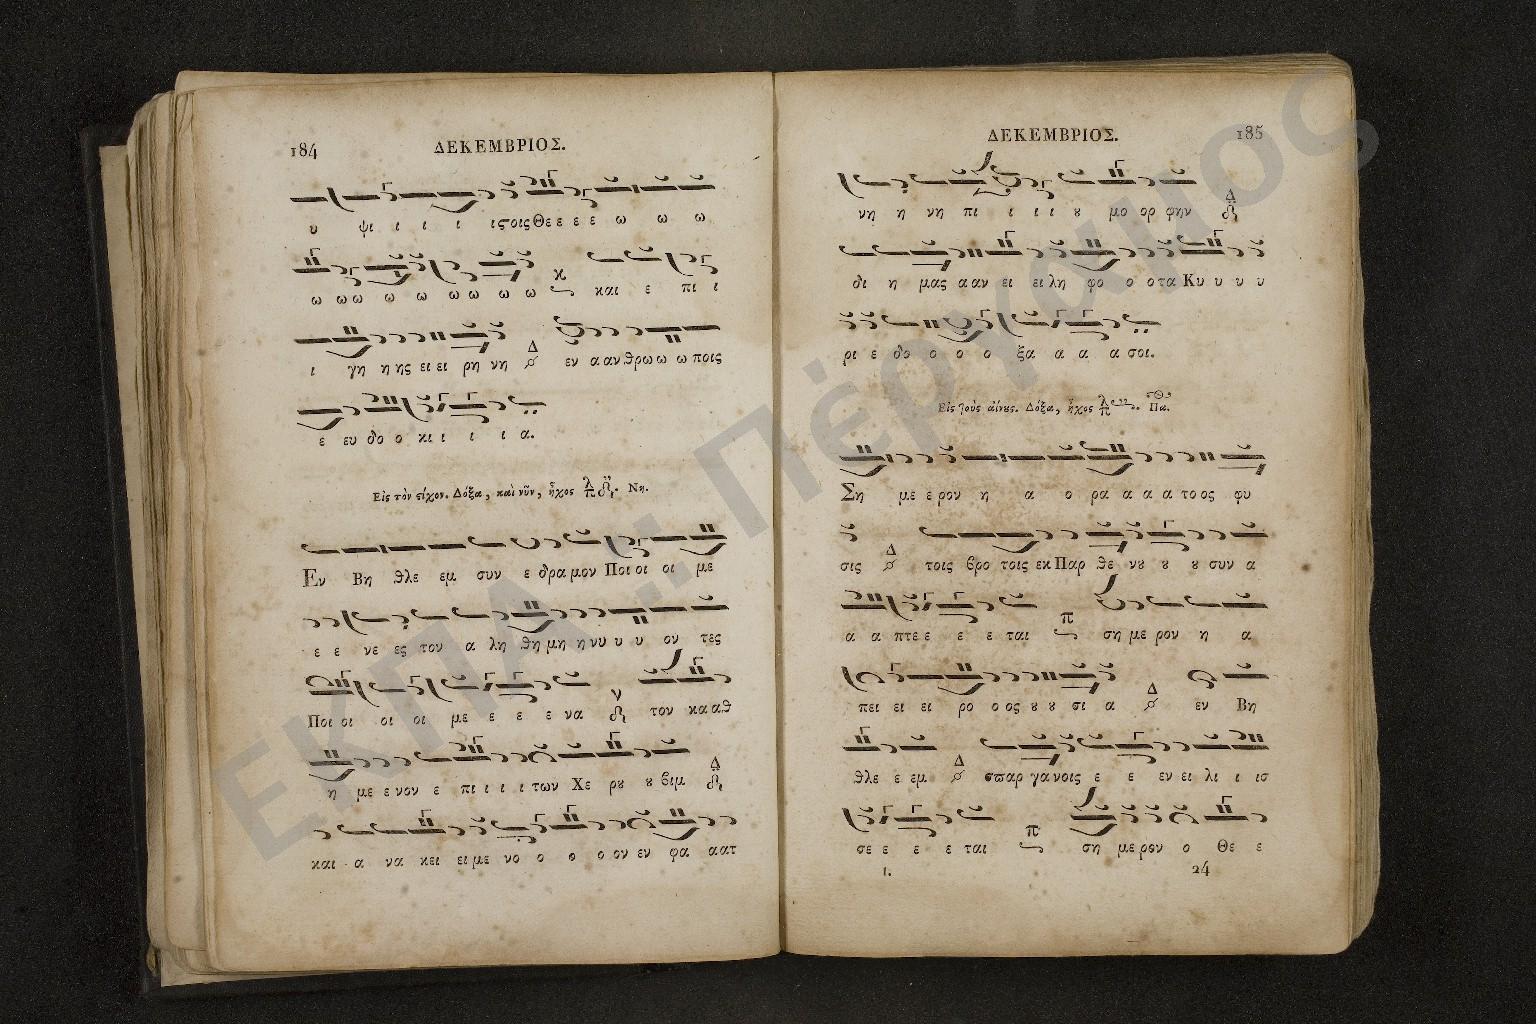 184 ΔΕΚΕΜΒΡΙΟΣ.
υ ψι ι ι ι ιςοις Θε ε ε ε ω ω ω
ω ω ω ω ω ω ω ω ω και ε πι ι
ι γη η ης ει ει ρη νη Δ εν α αν θρω ω ω ποις
ε ευ δο ο κι ι ι ι α.
Εἰς τὸν ςίχον. Δόξα, καὶ νῦν, ἦχος Νη.
Εν Βη θλε εμ συν ε δρα μον Ποι οι οι με
ε ε νε ες τον α λη θη μη η νυ υ υ ον τες
Ποι οι οι οι με ε ε ε να ν τον κα α θ
η με ε νον ε πι ι ι ι των Χε ρȣ ȣ βιμ Δ
και α να κει ει με νο ο ο ο ον εν φα α ατ
ΔΕΚΕΜΒΡΙΟΣ. 185
νη η νη πι ι ι ι ȣ μο ορ φην Δ
δι η μας α αν ει ει λη φο ο ο τα Κυ υ υ υ
ρι ε δο ο ο ο ξα α α α σοι.
Εἰς τοὺς αἴνȣς. Δόξα, ἦχος Πα.
Ση με ε ρον η α ο ρα α α α το ος φυ
σις Δ τοις βρο τοις εκ Παρ θε νȣ ȣ ȣ συν α
α α πτε ε ε ε ται π ση με ρον η α
πει ει ει ρο ο ος ȣ ȣ σι α Δ εν Βη
θλε ε εμ Δ σπαρ γα νοις ε ε εν ει λι ι ισ
σε ε ε ε ται π ση με ρον ο Θε ε
1. 24
ΕΚΠΑ :: Πέργαμος